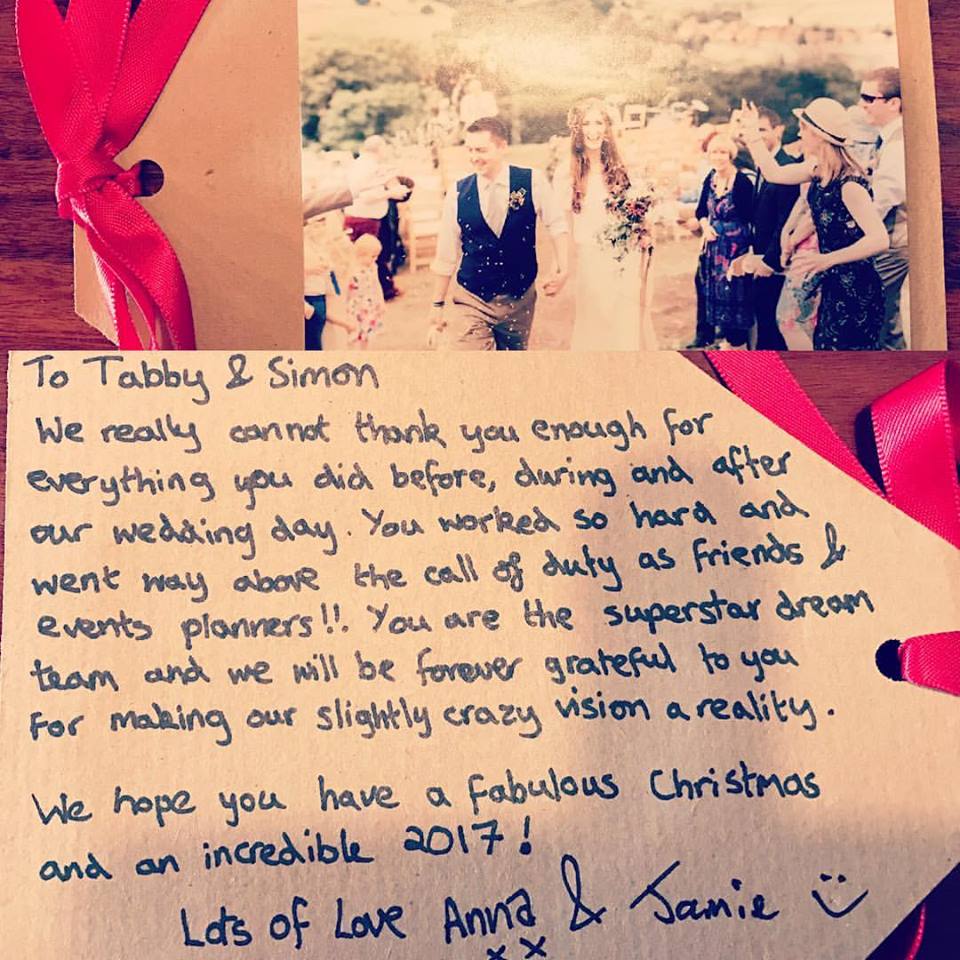 To Tabby & Simon
We really cannot thank you enough for
everything you did before, during and after
our wedding day. You worked so hard and
went way above the call of duty as friends &
events planners!! You are the superstar dream
team and we will be forever grateful to you
for making our slightly crazy vision a reality.
We hope you have a fabulous Christmas
and an incredible 2017!
Lots of Love Anna & Jamie
xx